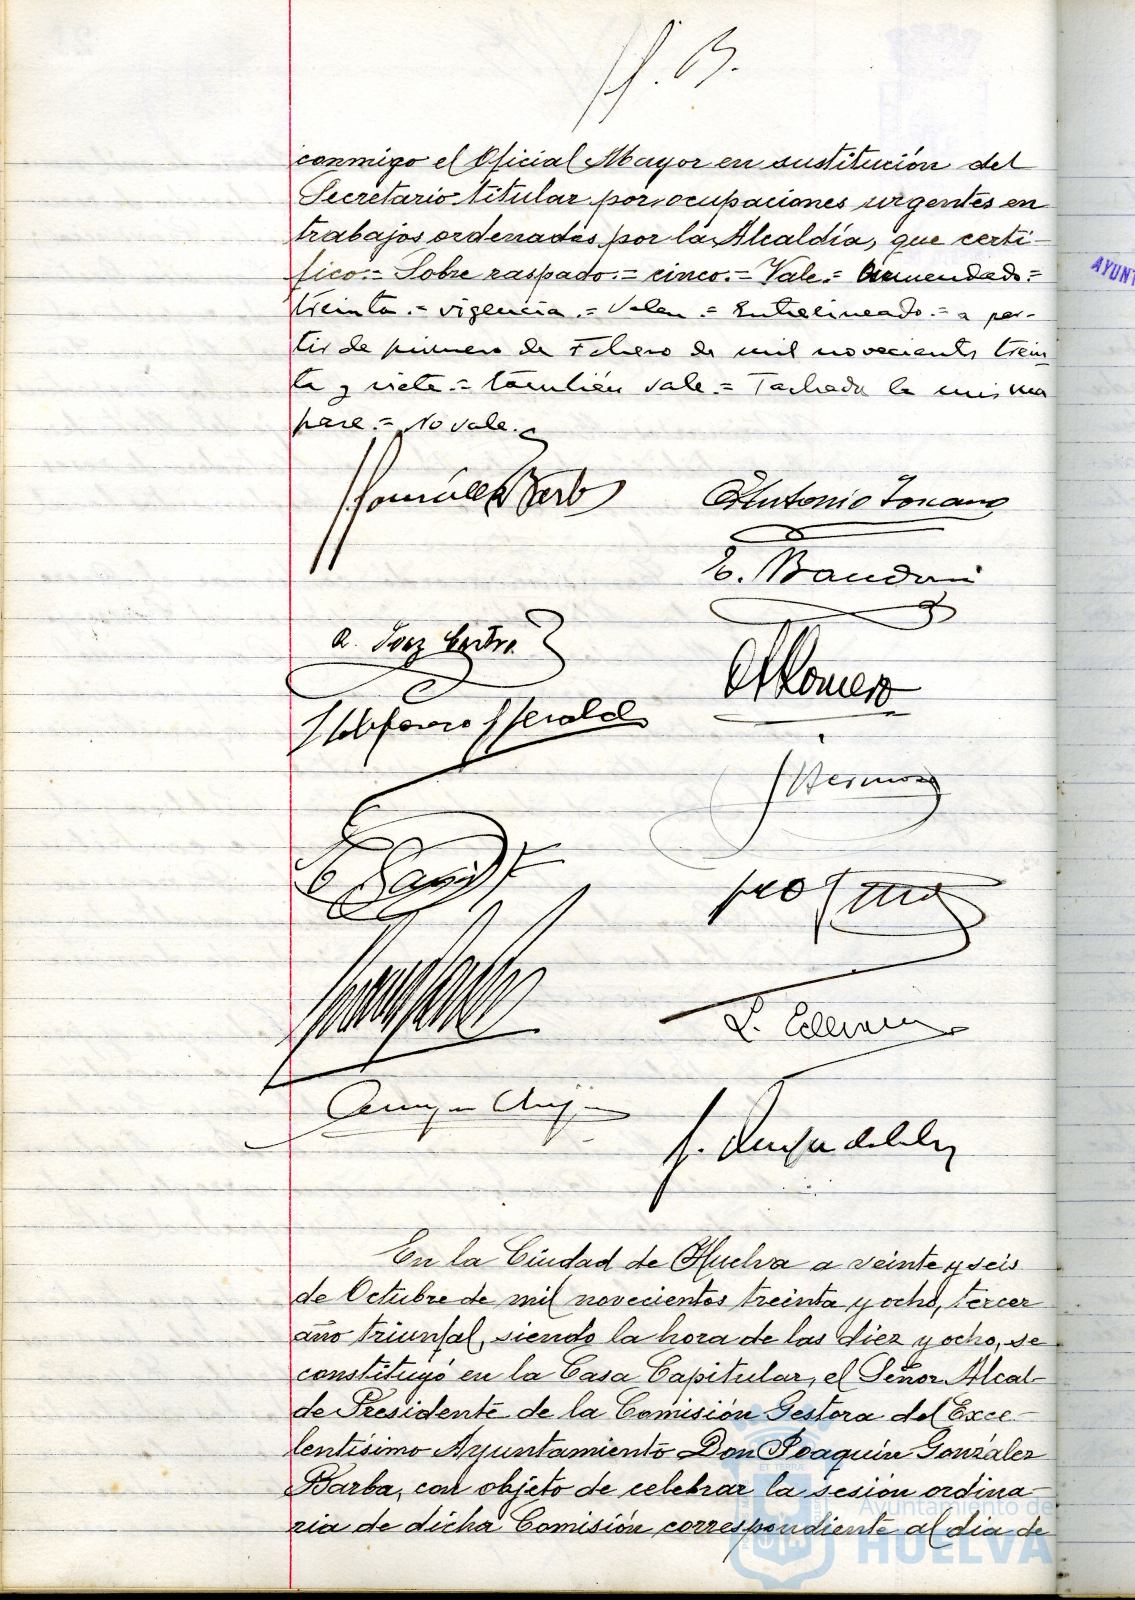 conmigo el Oficial Mayor en sustitución del
Secretario titular por ocupaciones urgentes en
trabajos ordenados por la Alcaldía, que certi-
fico.= Sobre raspado.= cinco.= Vale.= Enmendado.=
treinta.= vigencia.= Valen.= Entrelineado.= a par-
tir de primero de Febrero de mil novecientos trein
ta y siete.= también vale.= Tachado la misma
pare.= No vale.
González Barba
Antonio Toscano
E. Baudoin
Romero
Ildefonso
J Hermoso
En la Ciudad de Huelva a veinte y seis
de Octubre de mil novecientos treinta y ocho, tercer
año triunfal, siendo la hora de las diez y ocho, se
constituyó en la Casa Capitular, el Señor Alcal-
de Presidente de la Comisión Gestora del Exce-
lentísimo Ayuntamiento Don Joaquín González
Barba, con objeto de celebrar la sesión ordina-
ria de dicha Comisión correspondiente al día de
AYUNT
Ayuntamiento de
HUELVA